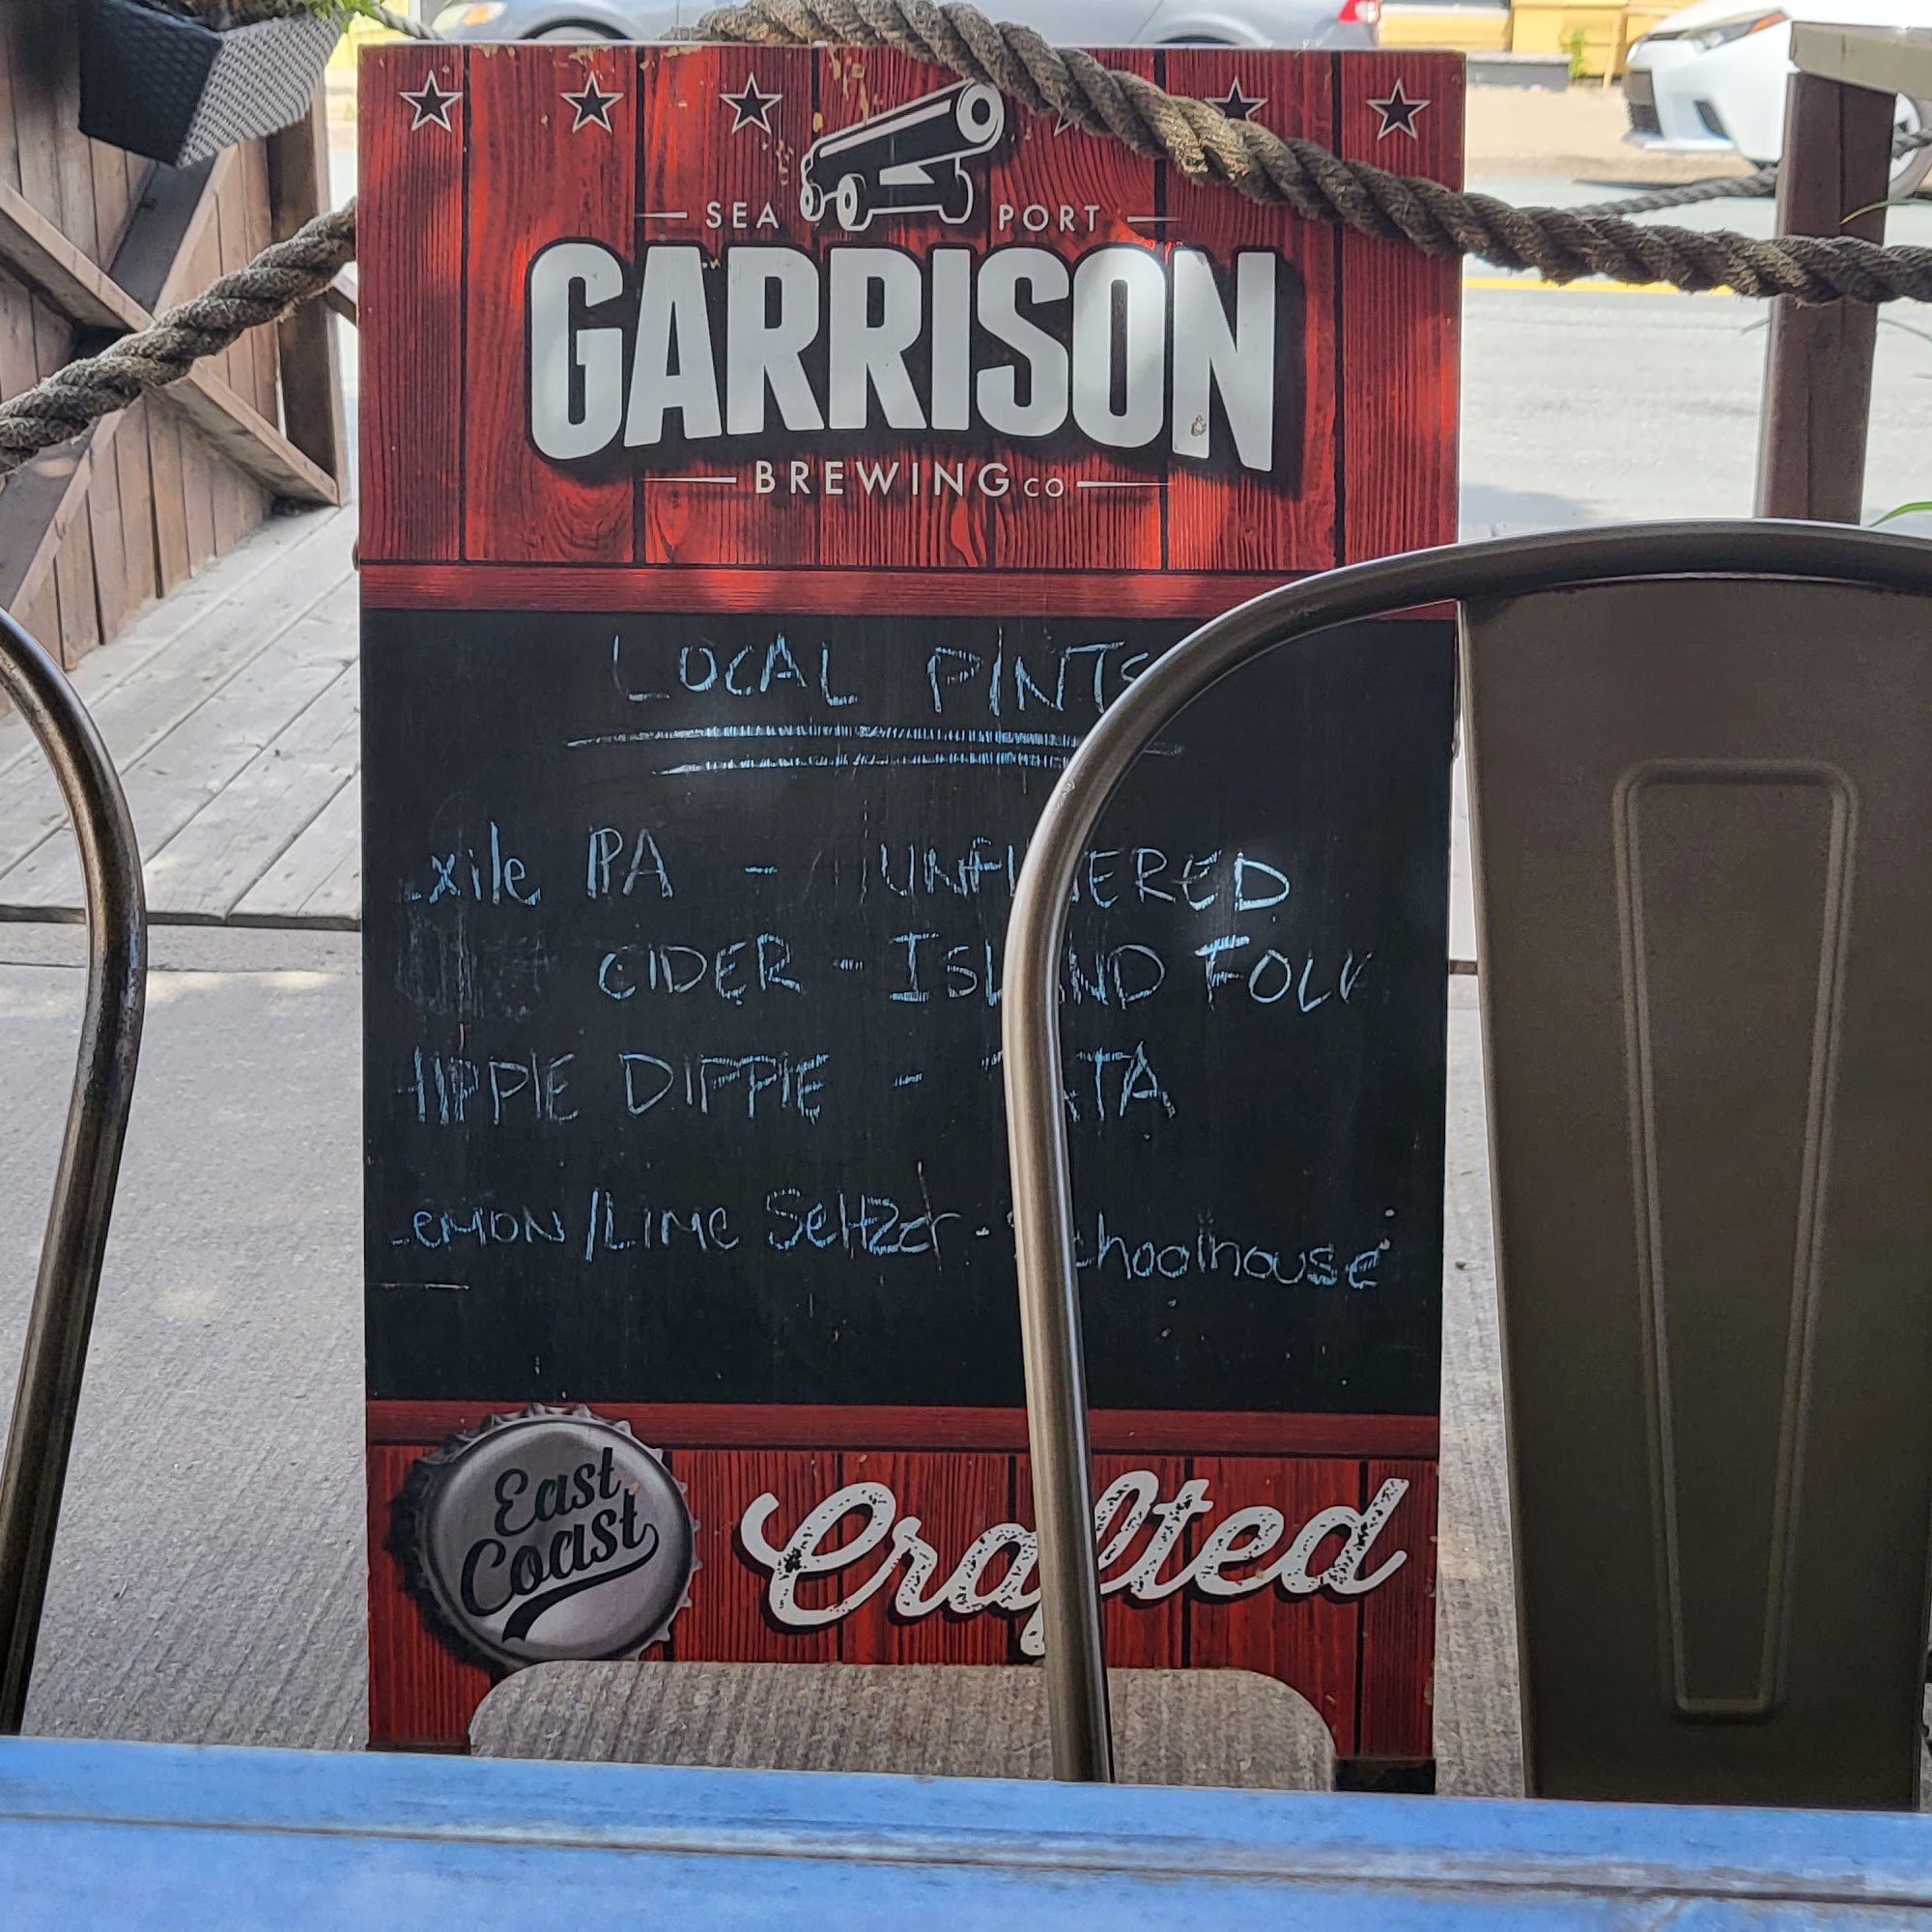 SEA PORT
GARRISON
BREWING CO
LOCAL PINTS
xile IPA - UNFILTERED
CIDER - ISLAND FOLK
HIPPIE DIPPIE - TATA
LEMON/LIME Seltzer - Schoolhouse
East
Coast
Crafted